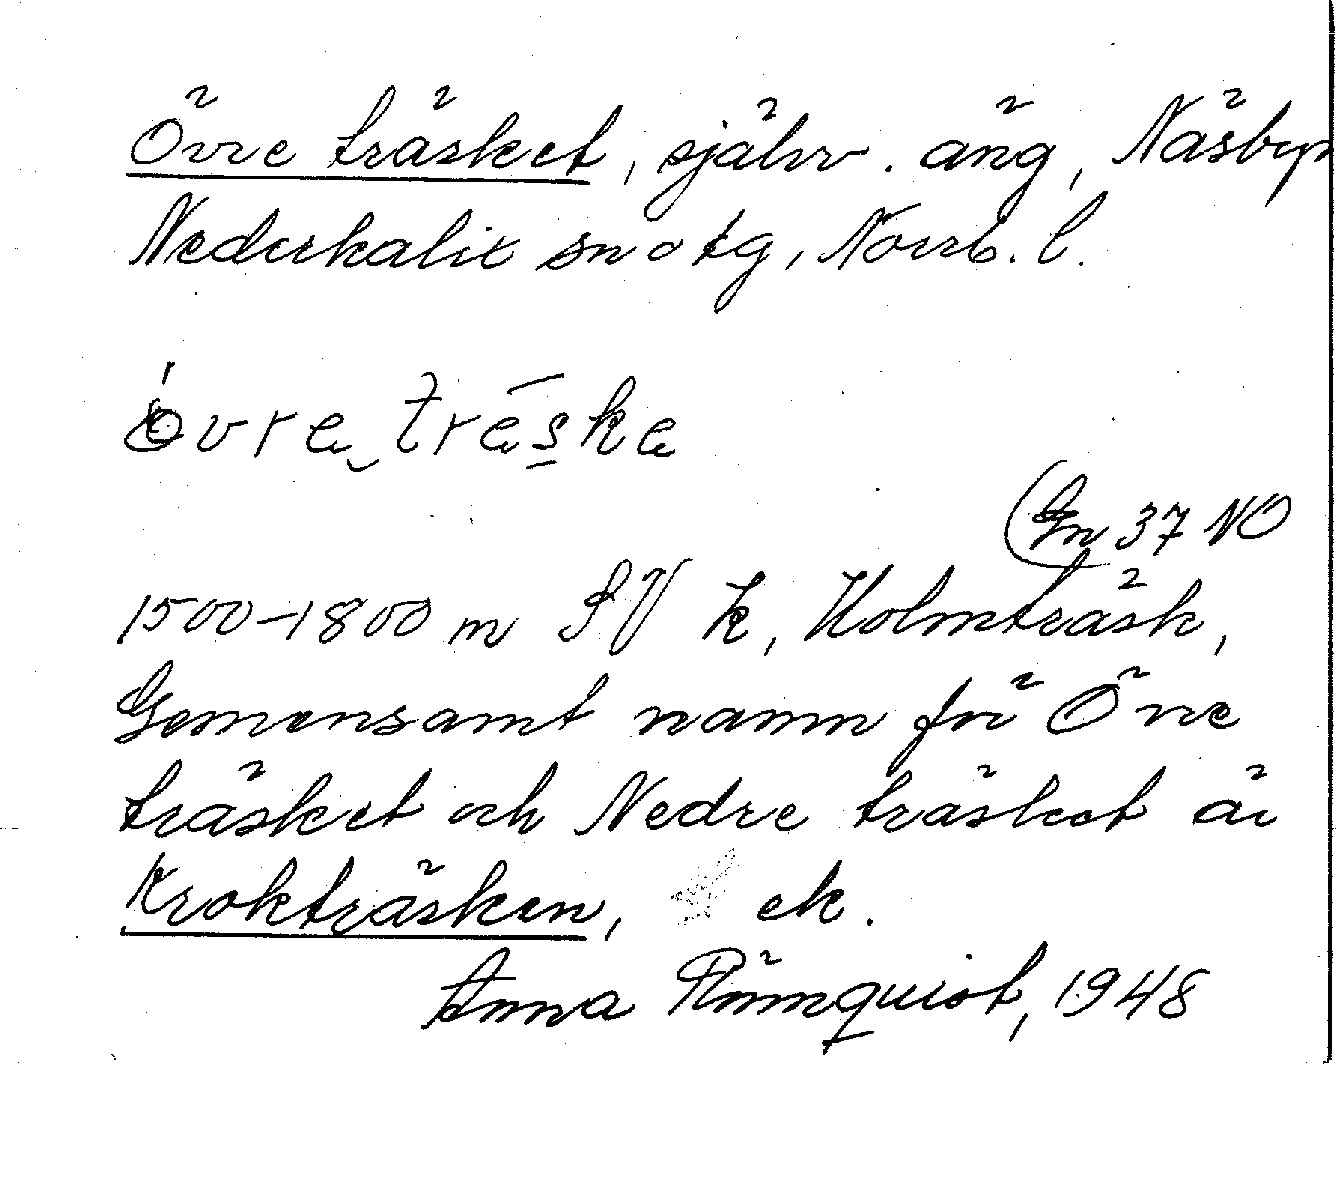 Övre träsket, självv. äng, Näsbyn
Nederkalix sn o tg, Norrb. l.
övrа träskа
(Gn 37 NO
1500-1800 m SV k, Holmträsk,
Gemensamt namn för Övre
träsket och Nedre träsket är
Krokträsken, ek.
Anna Rönnquist, 1948